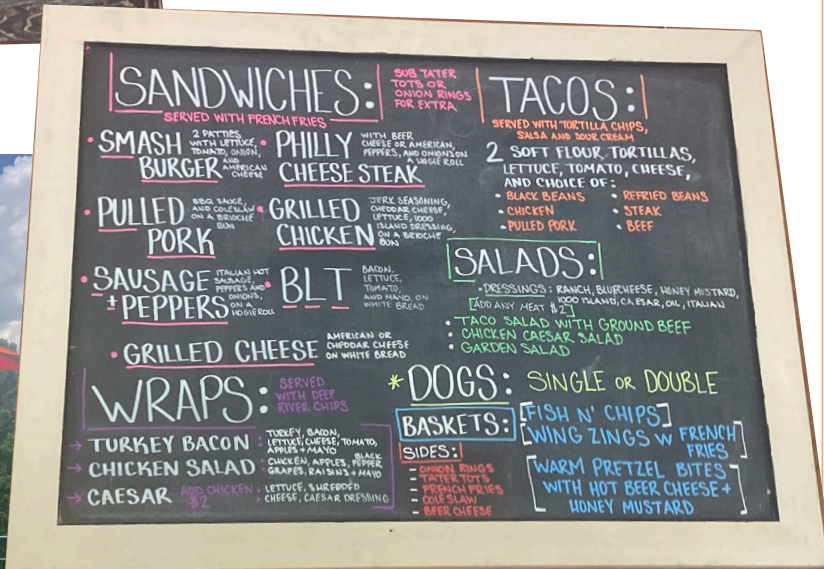 SANDWICHES:
SERVED WITH FRENCH FRIES
SUB TATER
TOTS OR
ONION RINGS
FOR EXTRA
SMASH
BURGER
2 PATTIES
WITH LETTUCE,
TOMATO, ONION,
AND
AMERICAN
CHEESE
PHILLY
CHEESE STEAK
WITH BEER
CHEESE OR AMERICAN,
PEPPERS, AND ONIONS ON
A HOGIE ROLL
PULLED
PORK
BBQ SAUCE,
AND COLESLAW
ON A BRIOCHE
BUN
GRILLED
CHICKEN
JERK SEASONING,
CHEDDAR CHEESE,
LETTUCE, 1000
ISLAND DRESSING,
ON A BRIOCHE
BUN
SAUSAGE
+ PEPPERS
ITALIAN HOT
SAUSAGE,
PEPPERS AND
ONIONS,
ON A
HOGIE ROLL
BLT
BACON,
LETTUCE,
TOMATO,
AND MAYO, ON
WHITE BREAD
GRILLED CHEESE
AMERICAN OR
CHEDDAR CHEESE
ON WHITE BREAD
WRAPS:
SERVED
WITH DEEP
RIVER CHIPS
→ TURKEY BACON :
TURKEY, BACON,
LETTUCE, CHEESE, TOMATO,
APPLES + MAYO
→ CHICKEN SALAD :
CHICKEN, APPLES, BLACK PEPPER
GRAPES, RAISINS + MAYO
→ CAESAR ADD CHICKEN :
$2
LETTUCE, SHREDDED
CHEESE, CAESAR DRESSING
TACOS:
SERVED WITH TORTILLA CHIPS,
SALSA AND SOUR CREAM
2 SOFT FLOUR TORTILLAS,
LETTUCE, TOMATO, CHEESE,
AND CHOICE OF:
• BLACK BEANS
• CHICKEN
• PULLED PORK
• REFRIED BEANS
• STEAK
• BEEF
SALADS:
• DRESSINGS: RANCH, BLUECHEESE, HONEY MUSTARD,
1000 ISLAND, CAESAR, OIL, ITALIAN
[ADD ANY MEAT $2]
• TACO SALAD WITH GROUND BEEF
• CHICKEN CAESAR SALAD
• GARDEN SALAD
*DOGS: SINGLE OR DOUBLE
BASKETS:
[FISH N' CHIPS]
[WING ZINGS W FRENCH
FRIES]
[WARM PRETZEL BITES
WITH HOT BEER CHEESE +
HONEY MUSTARD]
SIDES:
- ONION RINGS
- TATER TOTS
- FRENCH FRIES
- COLESLAW
- BEER CHEESE